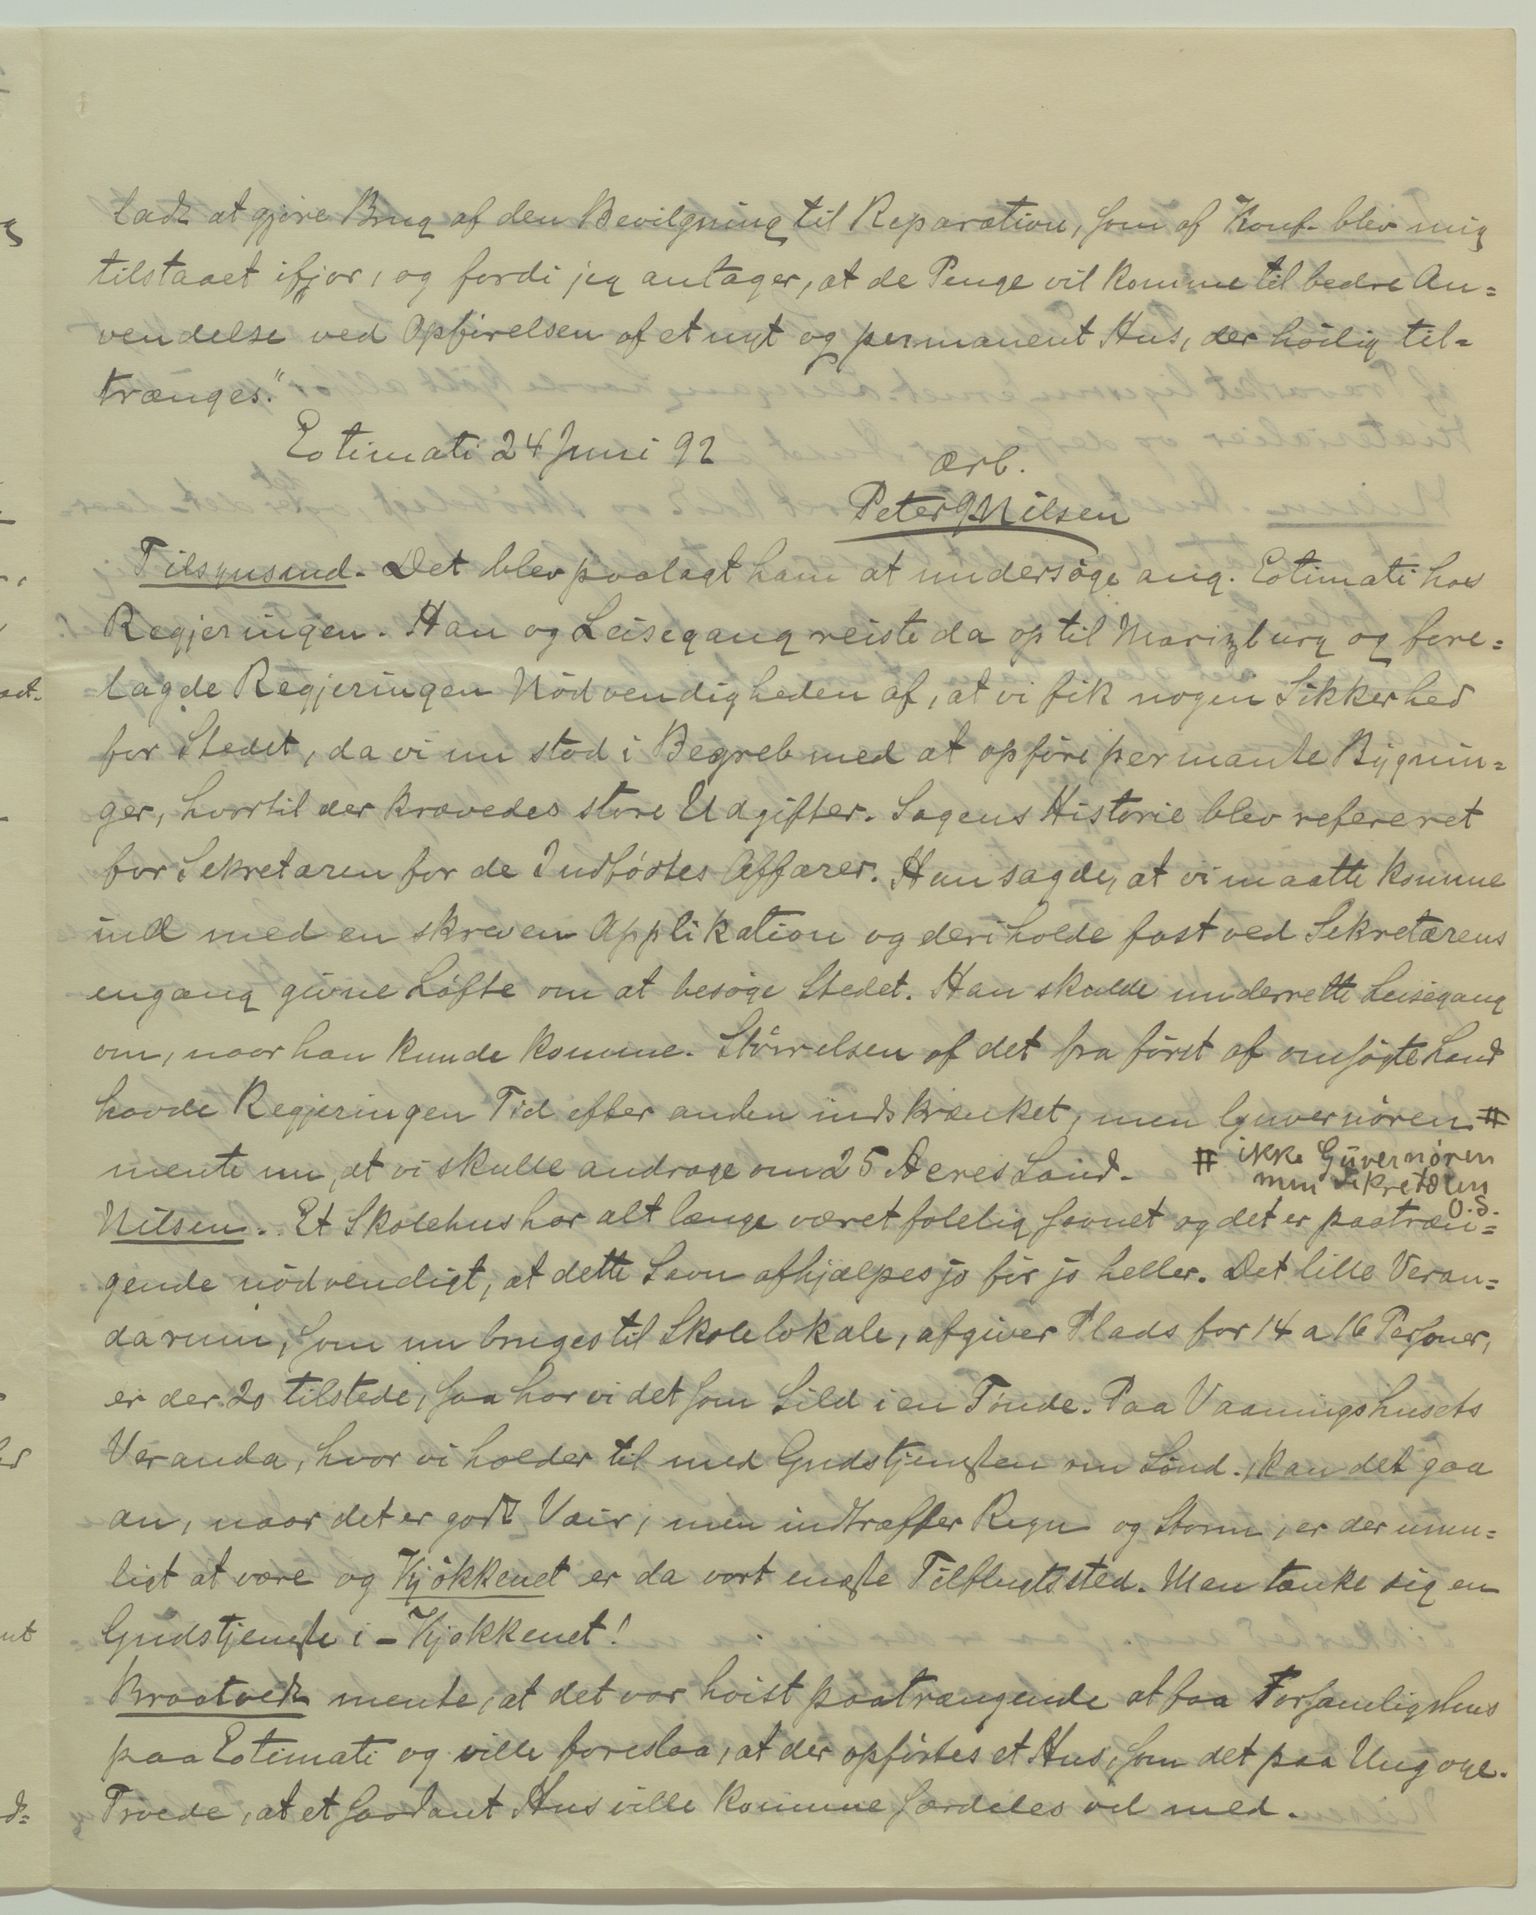 ladt at gjøre Brug af den Bevilgning til Reparation, som af Konf. blev mig
tilstaaet ifjor, og fordi jeg antager, at de Penge vil komme til bedre An=
vendelse ved Opførelsen af et nyt og permanent Hus, der höilig til=
trænges."
Eotimati 24 Juni 92
Ærb.
Peter Nilsen
Tilsynsmd. Det blev paalagt ham at undersöge ang. Eotimati hos
Regjeringen. Han og Leisegang reiste da op til Marizburg og fore=
lagde Regjeringen Nödvendigheden af, at vi fik nogen Sikkerhed
for Stedet, da vi nu stod i Begreb med at opföre permante Bygnin=
ger, hvortil der krævedes store Udgifter. Sagens Historie blev refereret
for Sekretæren for de Indfödtes Affærer. Han sagde, at vi maatte komme
ind med en skreven Applikation og deri holde fast ved Sekretærens
engang givne Löfte om at besöge Stedet. Han skulde underrette Leisegang
om, naar han kunde komme. Störrelsen af det fra först af omsögte Land
havde Regjeringen Tid efter anden indskrænket, men Guvernören #
mente nu, at vi skulle andrage om 25 Acres Land.
# ikke Guvernören
men Sekretæren
O.S.
Nilsen. Et Skolehus har alt længe været fölelig savnet og det er paatræn=
gende nödvendigt, at dette Savn afhjælpes jo för jo heller. Det lille Veran=
darum, som nu bruges til Skolelokale, afgiver Plads for 14 a 16 Personer,
er der 20 tilstede, saa har vi det som Sild i en Tönde. Paa Vaaningshusets
Veranda, hvor vi holder til med Gudstjensten om Sönd., kan det gaa
an, naar det er godt Veir, men indtræffer Regn og Storm, er der umu=
ligt at være og Kjökkenet er da vort eneste Tilflugtssted. Man tænke sig en
Gudstjenste i – Kjøkkenet!
Braatvedt mente, at det var höist paatrængende at faa Forsamligshus
paa Eotimati og ville foreslaa, at der opförtes et Hus, som det paa Ungoye.
Troede, at et saadant Hus ville komme særdeles vel med.